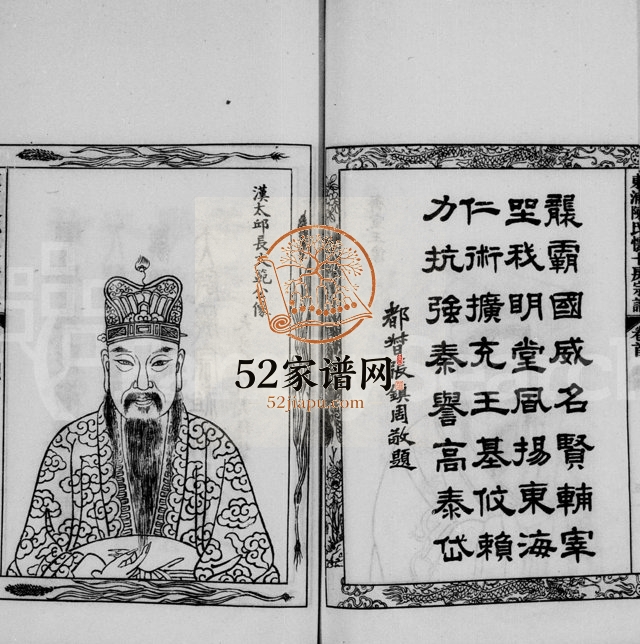 襲霸國威名賢輔宰
我明堂風揚東海
仁術擴充王基攸賴
力抗強秦譽高泰岱
都督張鎮周敬題
漢太邱長文範公像
卷首
52家谱网
52jiapu.com